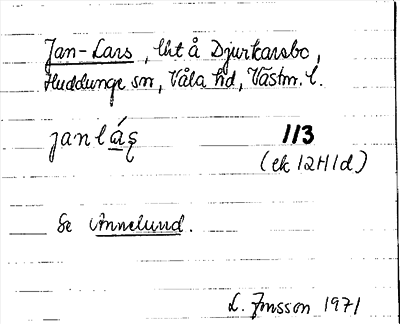 Jan-Lars, lht å Djurkarsbo,
Huddunge sn, Våla hd, Västm. l.
janlá̱ș 113
(ek 12H1d)
Se Annelund.
L. Jonsson 1971